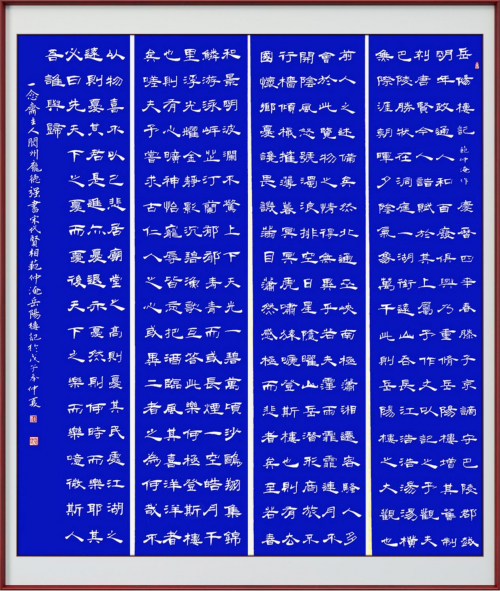 岳陽樓記 范仲淹作 慶曆四年春滕子京謫守巴陵郡越
明年政通人和百廢俱興乃重脩岳陽樓增其舊制
刻唐賢今人詩賦於其上屬予作文以記之予觀夫
巴陵勝狀在洞庭一湖銜遠山吞長江浩浩湯湯橫
無際涯朝暉夕陰氣象萬千此則岳陽樓之大觀也
前人之述備矣然北通巫峽南極瀟湘遷客騷人多
會於此覽物之情得無異乎若夫霪雨霏霏連月不
開陰風怒號濁浪排空日星隱曜山岳潛形商旅不
行檣傾楫摧薄暮冥冥虎嘯猿啼登斯樓也則有去
國懷鄉憂讒畏譏滿目蕭然感極而悲者矣至若春
和景明波瀾不驚上下天光一碧萬頃沙鷗翔集錦
鱗游泳岸芷汀蘭郁郁青青而或長煙一空皓月千
里浮光耀金靜影沉璧漁歌互答此樂何極登斯樓
也則有心曠神怡寵辱皆忘把酒臨風其喜洋洋者
矣嗟夫予嘗求古仁人之心或異二者之為何哉不
以物喜不以己悲居廟堂之高則憂其民處江湖之
遠則憂其君是進亦憂退亦憂然則何時而樂耶其
必曰先天下之憂而憂後天下之樂而樂噫微斯人
吾誰與歸
一念齋主人閬州龐德強書宋代賢相范仲淹岳陽樓記於戊子年仲夏